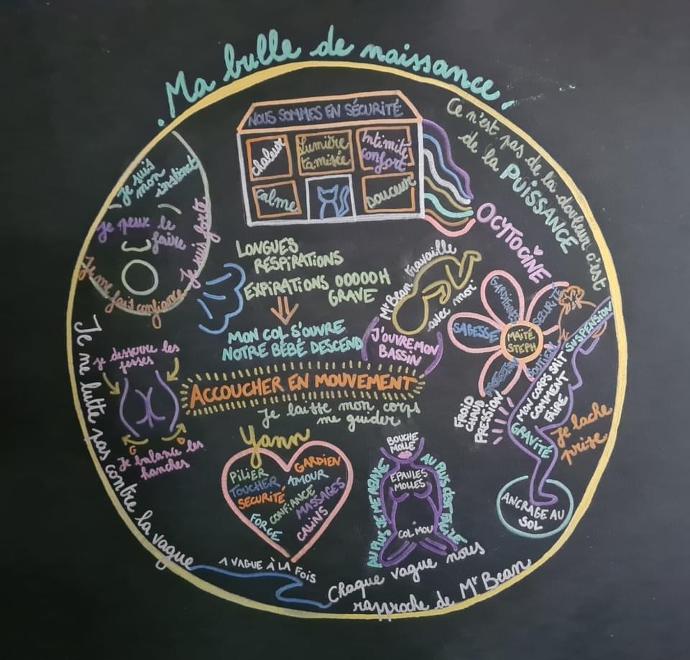 Ma bulle de naissance
NOUS SOMMES EN SÉCURITÉ
chaleur
Lumière
tamisée
Intimité
Confort
Calme
Douceur
Ce n'est pas de la douleur c'est
de la PUISSANCE
OCYTOCINE
Je suis
mon
instinct
Je peux le
faire
Je me fais confiance
Je suis forte
LONGUES
RESPIRATIONS
EXPIRATIONS OOOOOH
GRAVE
MON COL S'OUVRE
NOTRE BÉBÉ DESCEND
Mr Bean travaille
avec moi
J'OUVRE MON
BASSIN
GARDIENNES
SÉCURITÉ
SAGESSE
MAÏTÉ
STEPH
SOUTIEN
SUSPENSION
MON CORPS SAIT
COMMENT
FAIRE
FROID
CHAUD
PRESSION
GRAVITÉ
Je lâche
prise
ANCRAGE AU
SOL
ACCOUCHER EN MOUVEMENT
Je laisse mon corps
me guider
je desserre les
fesses
G
D
Je balance les
hanches
Je ne lutte pas contre la vague
Yann
PILIER
GARDIEN
TOUCHER
AMOUR
SÉCURITÉ
CONFIANCE
MASSAGES
FORCE
CALINS
BOUCHE
MOLLE
EPAULES
MOLLES
COL MOU
1 VAGUE À LA FOIS
Chaque vague nous
rapproche de Mr Bean